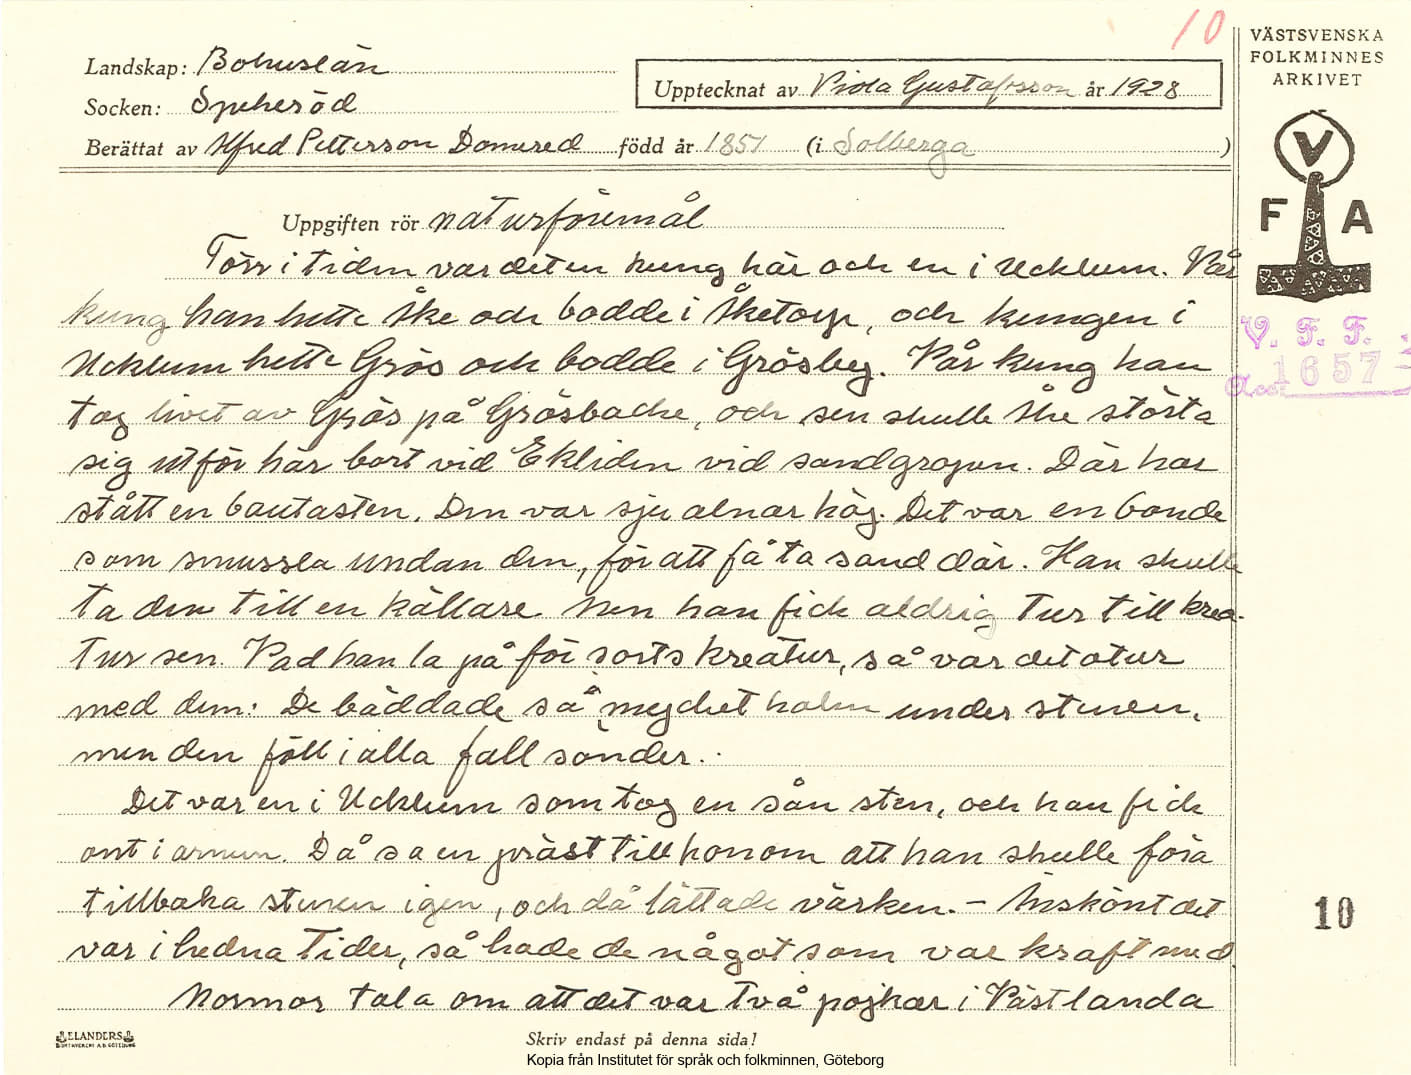 10
VÄSTSVENSKA
FOLKMINNES
ARKIVET
Landskap: Bohuslän
Socken: Spekeröd
Upptecknat av Viola Gustafsson år 1928
Berättat av Alfred Petterson Domered född år 1851 (i Solberga )
V
F A
Uppgiften rör naturföremål
Förr i tiden var det en kung här och en i Ucklum. Vår
kung han hette Åke och bodde i Åketorp, och kungen i
Ucklum hette Grös och bodde i Grösby. Vår kung han
tog livet av Grös på Grösbacke, och sen skulle Åke störta
sig utför här bort vid Ekliden vid sandgropen. Där har
stått en bautasten. Den var sju alnar hög. Det var en bonde
som smussla undan den, för att få ta sand där. Han skulle
ta den till en källare. Men han fick aldrig tur till krea-
tur sen. Vad han la på för sorts kreatur, så var det otur
med dem: De bäddade så mycket halm under stenen,
men den föll i alla fall sönder.
Det var en i Ucklum som tog en sån sten, och han fick
ont i armen. Då sa en präst till honom att han skulle föra
tillbaka stenen igen, och då lättade värken. – Änskönt det
var i hedna tider, så hade de något som var kraft med.
Mormor tala om att det var två pojkar i Västlanda
V. F. F.
Acc. 1657
10
ELANDERS
BOKTRYCKERI A.B. GÖTEBORG
Skriv endast på denna sida!
Kopia från Institutet för språk och folkminnen, Göteborg